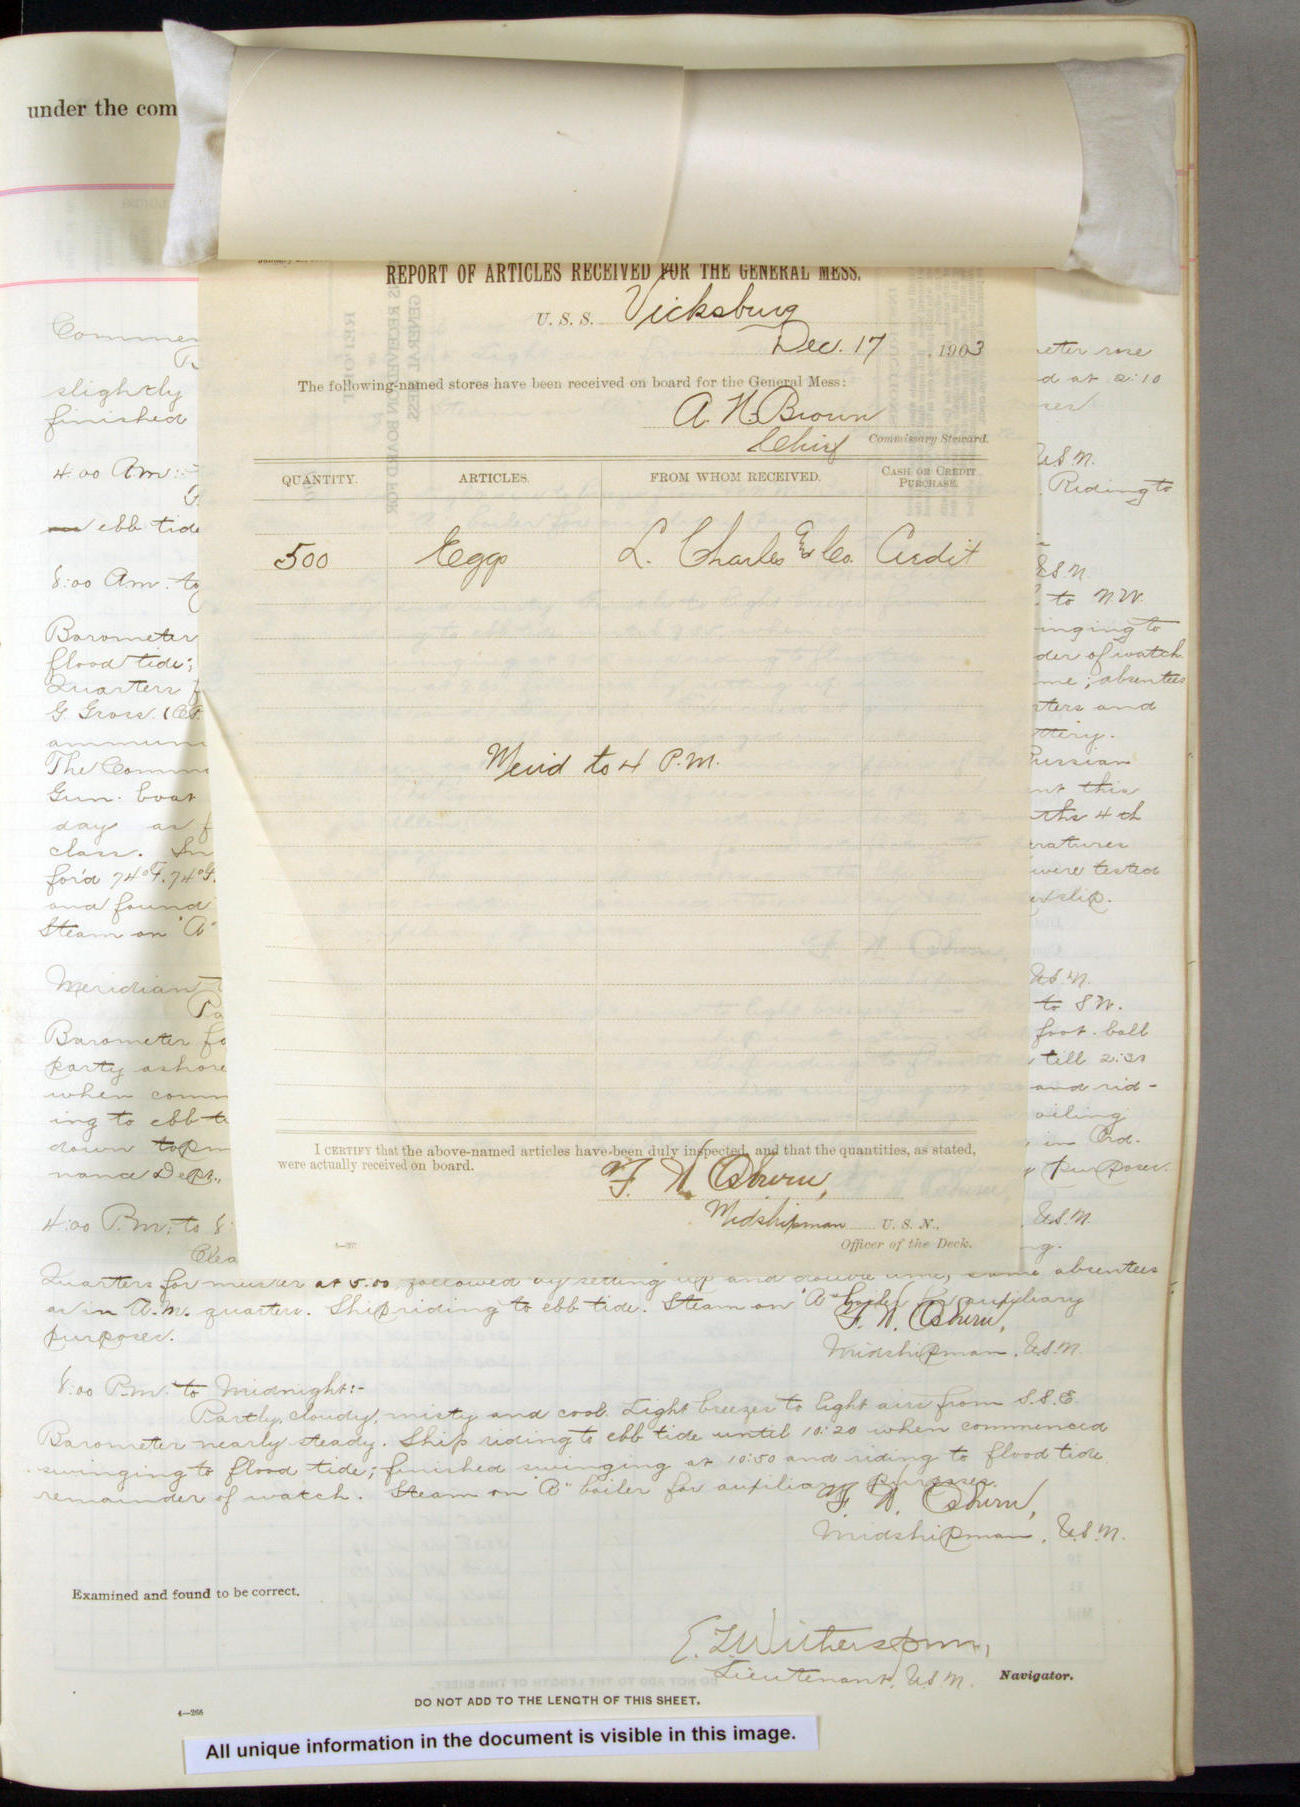 under the com
REPORT OF ARTICLES RECEIVED FOR THE GENERAL MESS.
U. S. S. Vicksburg
Dec. 17, 1903
The following-named stores have been received on board for the General Mess:
A. H. Brown
Chief Commissary Steward.
QUANTITY. ARTICLES. FROM WHOM RECEIVED. CASH OR CREDIT PURCHASE.
500 Eggs L. Charles & Co. Credit
Merid to 4 P.M.
I CERTIFY that the above-named articles have been duly inspected, and that the quantities, as stated,
were actually received on board.
F. H. Osburn,
Midshipman U. S. N.,
Officer of the Deck.
Commen
slightly
finished
4:00 A.m.
ebb tide
8:00 A.m. to
Barometer
flood tide;
Quarters f
G. Gross.
ammuni
The Comm
Gun-boat
day as f
class. In
for'd 74°F. 74°
and found
Steam on "A"
Meridian
Barometer fa
party ashore
when comm
ing to ebb t
down topm
nance Dept.,
4:00 P.m. to 8:
Clea
eter rose
d at 2:10
U.S.N.
Riding to
U.S.N.
to N.W.
inging to
der of watch
me; absentees
ters and
ttery.
Russian
nt this
ths 4th
eratures
were tested
slip.
U.S.N.
to S.W.
foot-ball
till 2:30
and rid-
oiling
in Ord-
purposes.
U.S.N.
ng.
Quarters for muster at 5.00, followed by setting up and double time, same absentees
as in A.M. quarters. Ship riding to ebb tide. Steam on "A" boiler for auxiliary
purposes.
F. H. Osburn,
Midshipman, U.S.N.
8:00 P.m. to Midnight:-
Partly cloudy, misty and cool. Light breezes to light airs from S.S.E.
Barometer nearly steady. Ship riding to ebb tide until 10:20 when commenced
swinging to flood tide; finished swinging at 10:50 and riding to flood tide
remainder of watch. Steam on "B" boiler for auxiliary purposes.
F. H. Osburn,
Midshipman, U.S.N.
Examined and found to be correct.
E. T. Witherspoon,
Lieutenant, U.S.N. Navigator.
DO NOT ADD TO THE LENGTH OF THIS SHEET.
All unique information in the document is visible in this image.